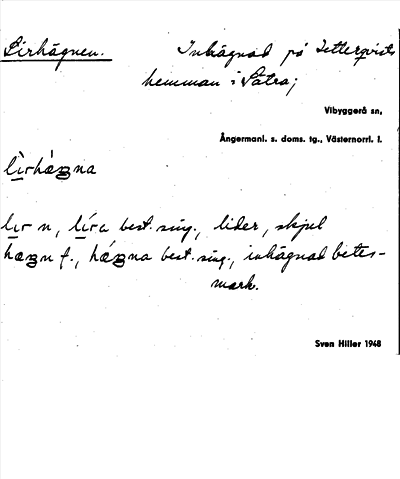 Lirhägnen. Inhägnad på Zetterqvists
hemman i Sätra;
Vibyggerå sn,
Ångermanl. s. doms. tg., Västernorrl. l.
lìrhæʒna
lɩr n, lɩ́ra best. sing., lider, skjul
hæʒn f., hǽʒna best. sing., inhägnad betes-
mark.
Sven Hiller 1948